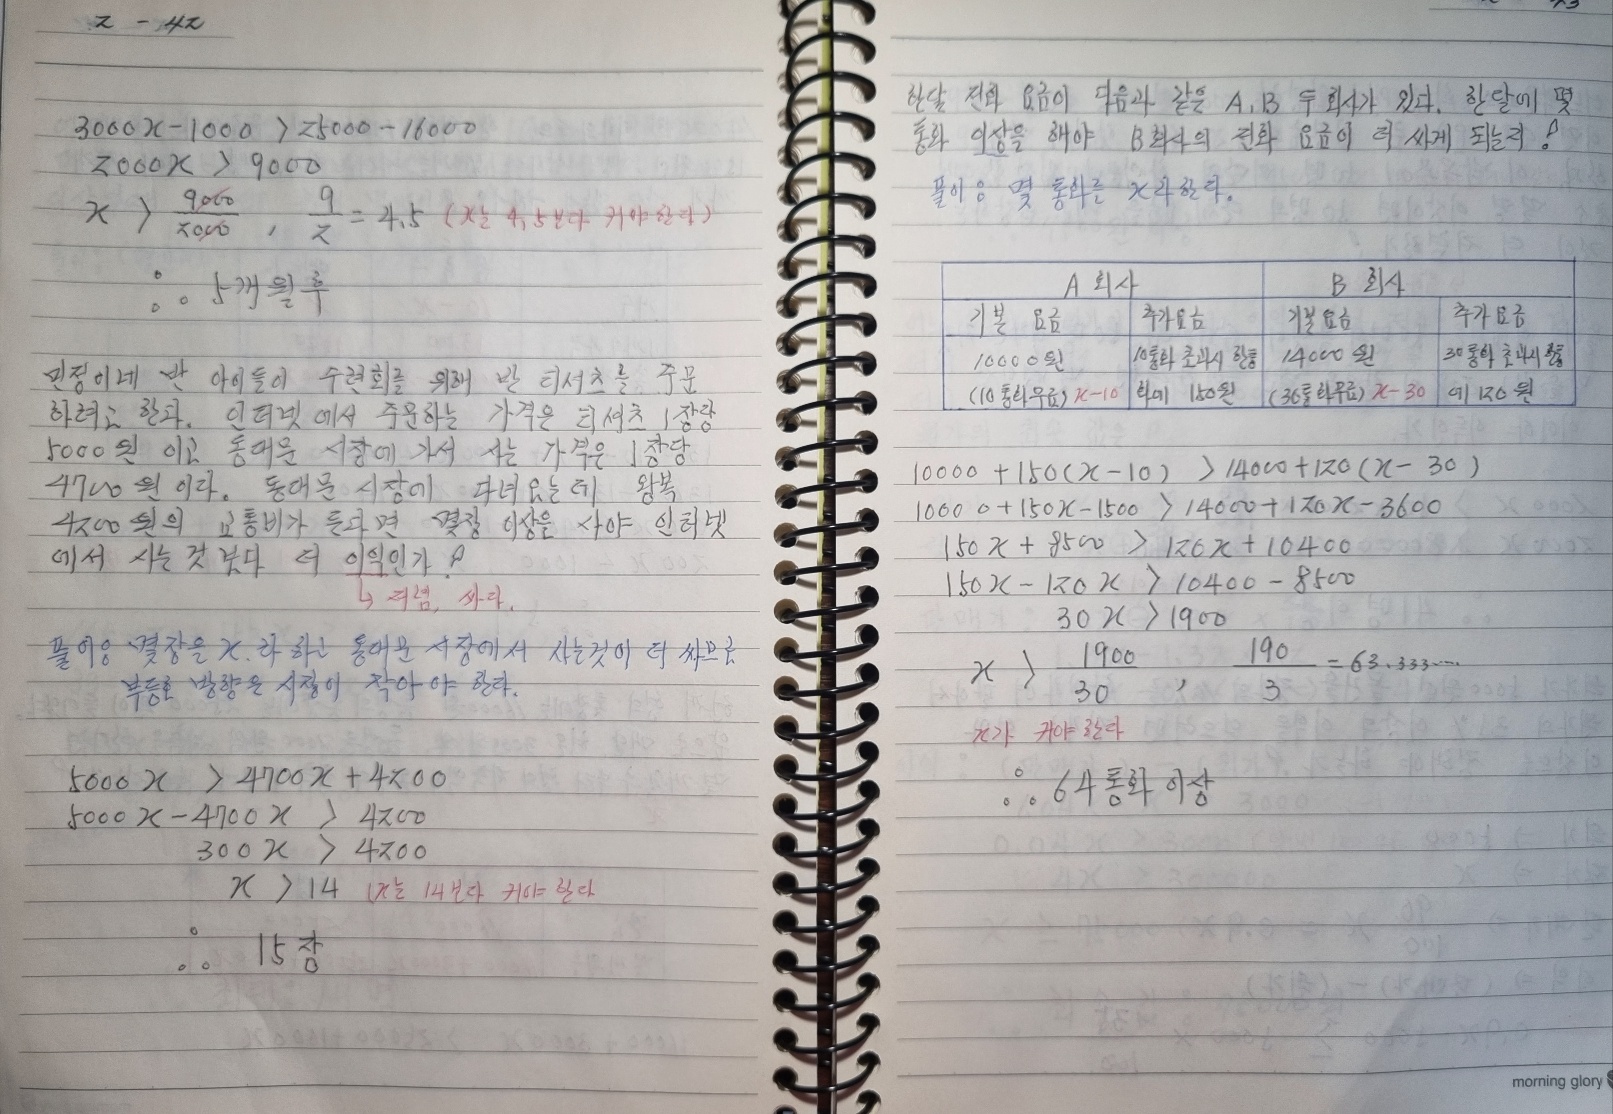 2 - 42
3000x-1000 > 25000-16000
2000x > 9000
x > 9000/2000 , 9/2 = 4.5 (x는 4.5보다 커야 한다)
∴ 5개월 후
민정이네 반 아이들이 수련회를 위해 반 티셔츠를 주문
하려고 한다. 인터넷에서 주문하는 가격은 티셔츠 1장당
5000원 이고 동대문 시장에 가서 사는 가격은 1장당
4700원 이다. 동대문 시장에 다녀오는데 왕복
4200원의 교통비가 든다면 몇장 이상을 사야 인터넷
에서 사는것 보다 더 이익인가?
↳ 저념, 싸다.
풀이⇒ 몇장을 x라 하는 동대문 시장에서 사는것이 더 싸므로
부등호 방향은 시장이 작아야 한다.
5000x > 4700x+4200
5000x-4700x > 4200
300x > 4200
x > 14 (x는 14보다 커야 한다
∴ 15장
한달 전화 요금이 다음과 같은 A, B 두 회사가 있다. 한달에 몇
통화 이상을 해야 B회사의 전화 요금이 더 싸게 되는지?
풀이⇒ 몇 통화를 x라 한다.
A 회사 B 회사
기본 요금 추가요금 기본요금 추가요금
10000원 10통화 초과시 한통 14000원 30통화 초과시 한통
(10통화무료) x-10 화에 150원 (30통화무료) x-30 에 120원
10000+150(x-10) > 14000+120(x-30)
10000+150x-1500 > 14000+120x-3600
150x+8500 > 120x+10400
150x-120x > 10400-8500
30x > 1900
x > 1900/30 , 190/3 = 63.333....
x가 커야 한다
∴ 64통화 이상
morning glory